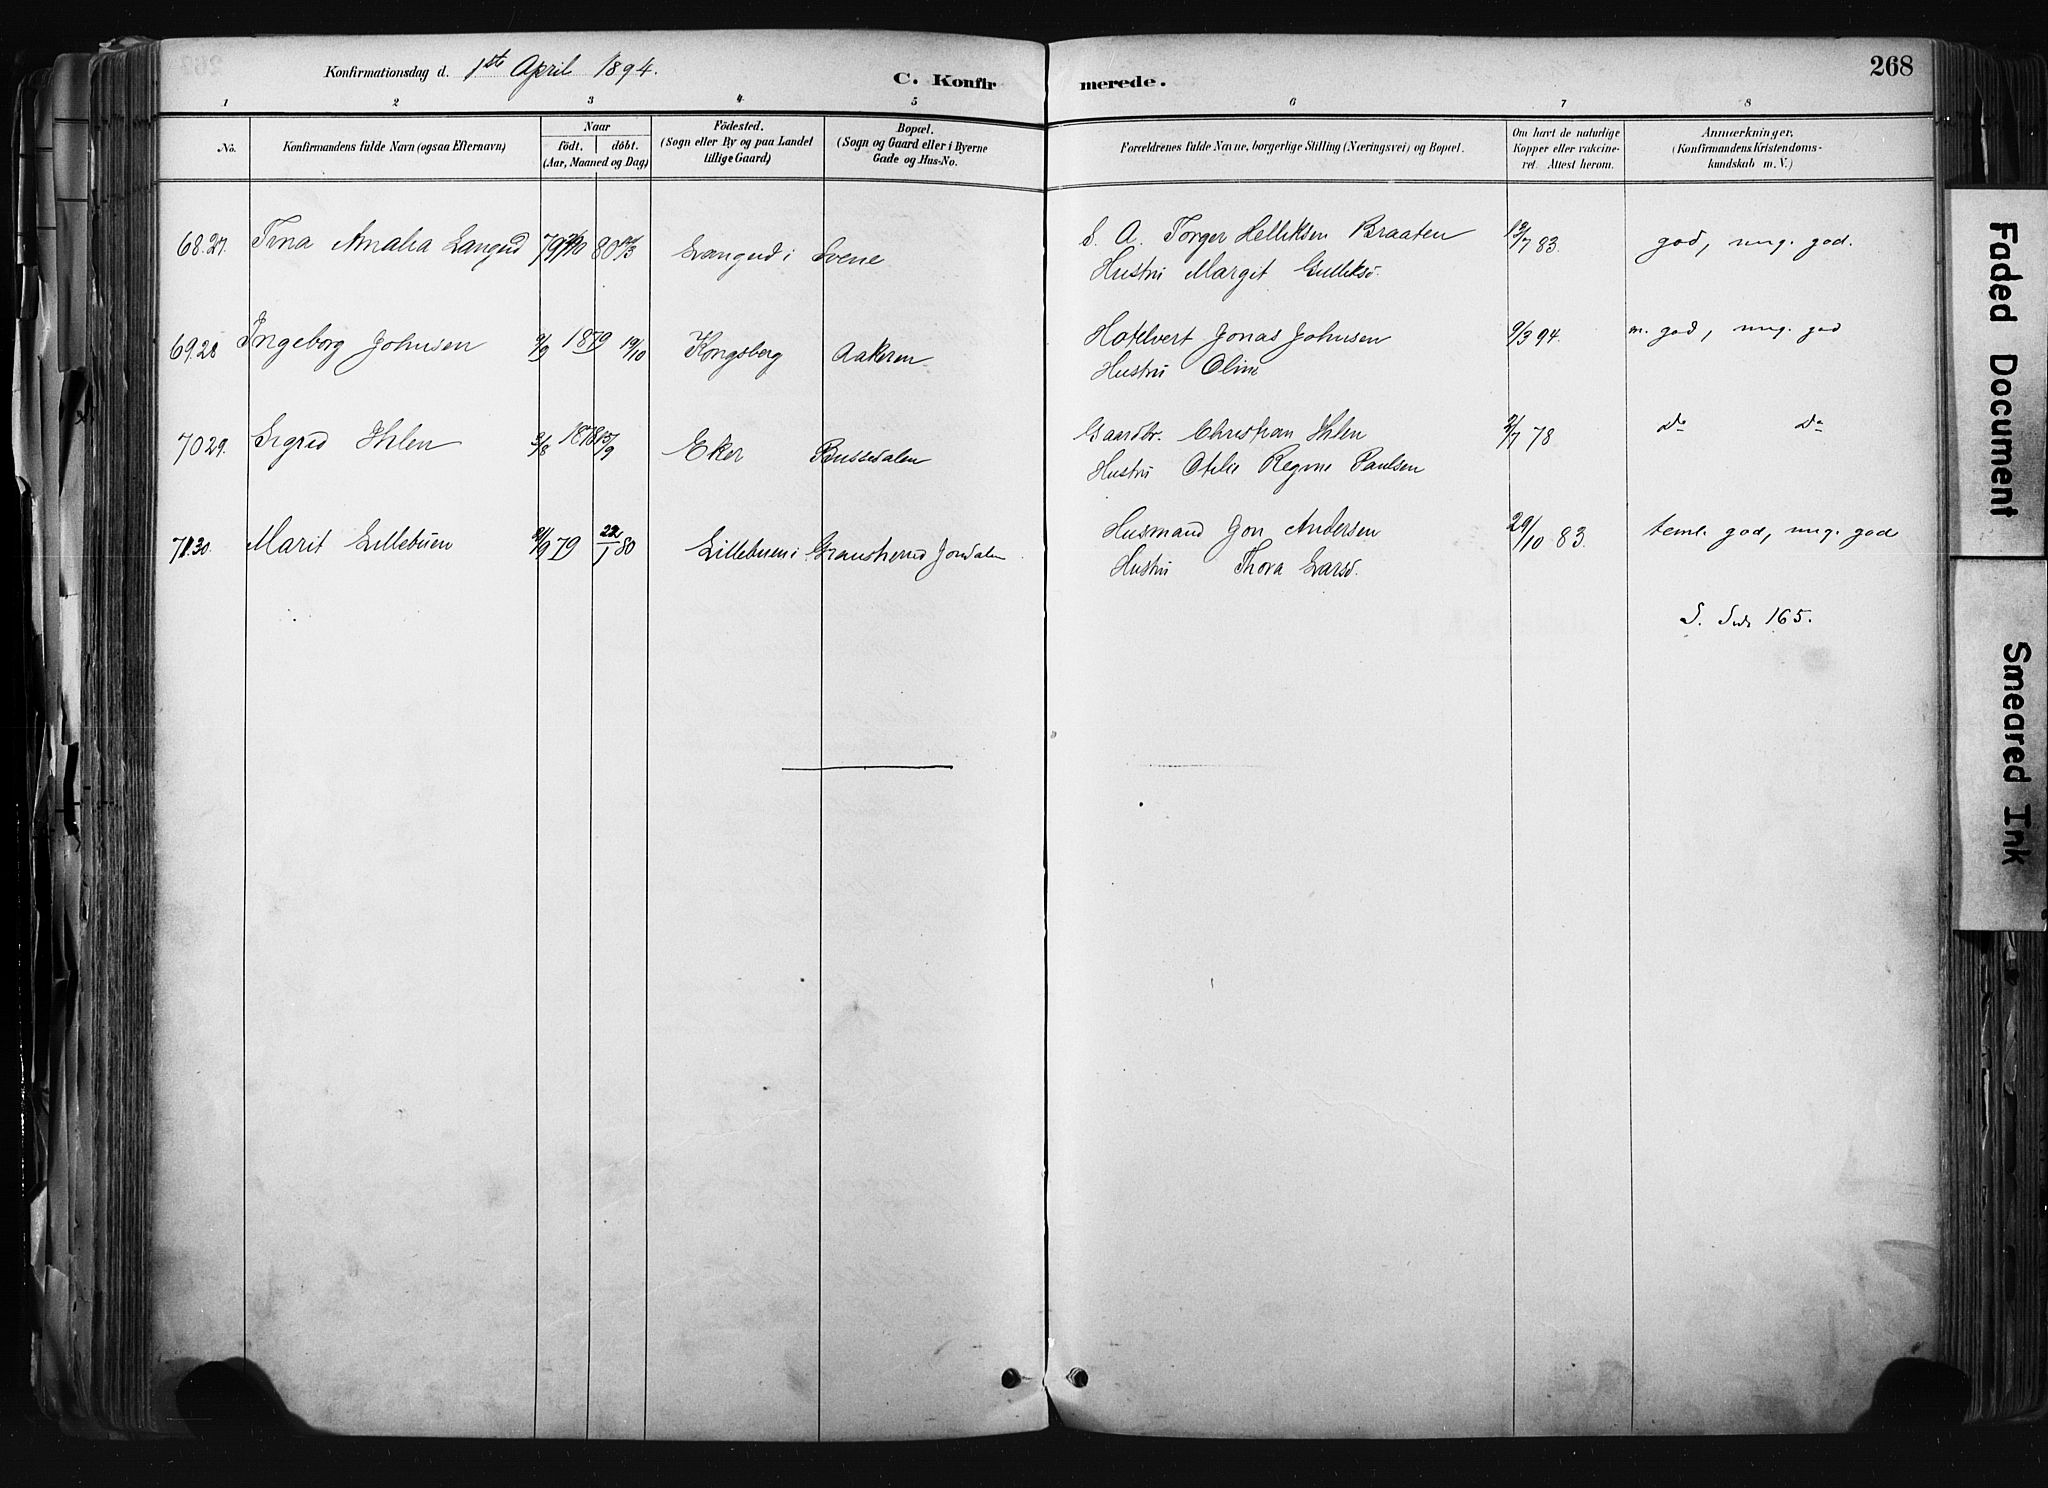 Konfirmationsdag d. 1ste April 1894.
C. Konfirmerede.
268
1 2 3 4 5 6 7 8
No.
Konfirmandens fulde Navn (ogsaa Efternavn)
Naar
födt. döbt.
(Aar, Maaned og Dag)
Födested.
(Sogn eller By og paa Landet
tillige Gaard)
Bopæl.
(Sogn og Gaard eller i Byerne
Gade og Hus-No.
Forældrenes fulde Navne, borgerlige Stilling (Næringsvei) og Bopæl.
Om havt de naturlige
Kopper eller vakcine-
ret. Attest herom.
Anmærkninger.
(Konfirmandens Kristendoms-
kundskab m. V.)
68.27. Tina Amalia Langud 79 80 Langud i Svene S. A. Torger Helliksen Braaten 12/7 83. god, meg. god.
Hustru Margit Gulliksd.
69.28 Ingeborg Johnsen 9/9 1879 19/10 Kongsberg Aakeren Hotelvert Jonas Johnsen 9/3 94. m. god, meg. god
Hustru Oline
70 29. Sigrid Ihlen 3/8 1878 15/9 Eker Bussedalen Gaardbr. Christian Ihlen 2/7 78 Do Do
Hustru Otelie Regine Paulsen
71.30. Marit Lillebuen 21/9 79 22/1 80 Lillebuen i Gransherred Jondalen Husmand Jon Andersen 29/10 83. teml. god, meg. god
Hustru Thora Larsd.
S. Side 165.
Faded Document
Smeared Ink